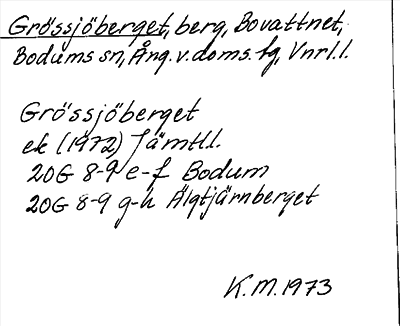 Grössjöberget, berg, Bovattnet,
Bodums sn, Ång.v.doms.fg, Vnrl.l.
Grössjöberget
ek (1972) Jämtl.
20G 8-9 e-f Bodum
20G 8-9 g-h Älgtjärnberget
K.M. 1973